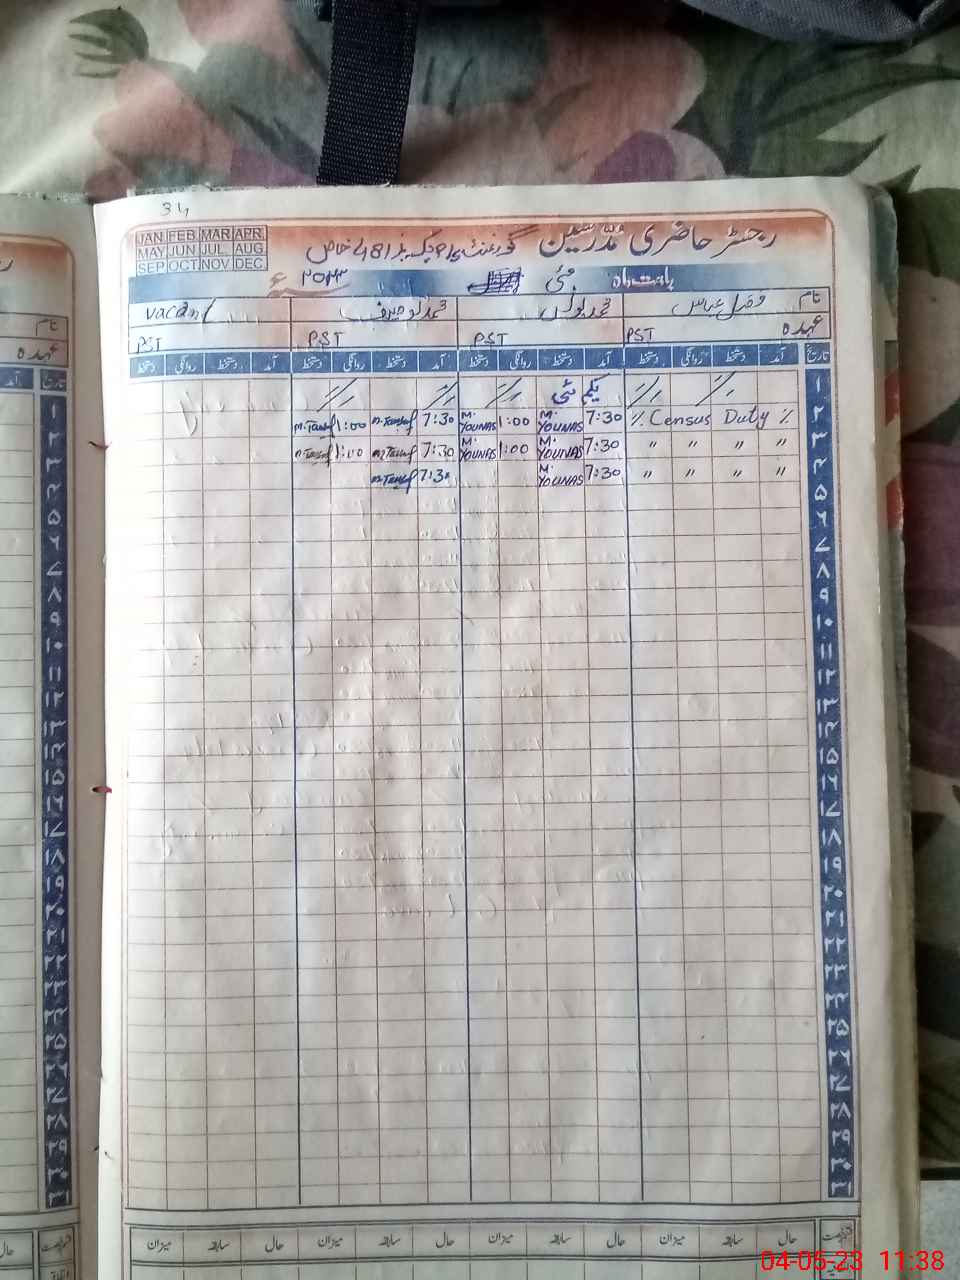 34
JAN FEB MAR APR
MAY JUN JUL AUG
SEP OCT NOV DEC.
رجسٹر حاضری مُدرّسین گورنمنٹ
بابت ماہ مئی ۲۰۲۳ء
نام فضل عباس محمد یونس محمد توصیف Vacant
عہدہ PST PST PST PST
تاریخ آمد دستخط روانگی دستخط آمد دستخط روانگی دستخط آمد دستخط روانگی دستخط آمد دستخط روانگی دستخط
۱ یکم مئی
۲ % Census Duty % 7:30 M. YOUNAS 1:00 M. YOUNAS 7:30 M. Tausif 1:00 M. Tausif
۳ " " " " 7:30 M. YOUNAS 1:00 M. YOUNAS 7:30 M. Tausif 1:00 M. Tausif
۴ " " " " 7:30 M. YOUNAS 7:30 M. Tausif
۵
۶
۷
۸
۹
۱۰
۱۱
۱۲
۱۳
۱۴
۱۵
۱۶
۱۷
۱۸
۱۹
۲۰
۲۱
۲۲
۲۳
۲۴
۲۵
۲۶
۲۷
۲۸
۲۹
۳۰
۳۱
حال سابقہ میزان حال سابقہ میزان حال سابقہ میزان حال سابقہ میزان
04-05-23 11:38